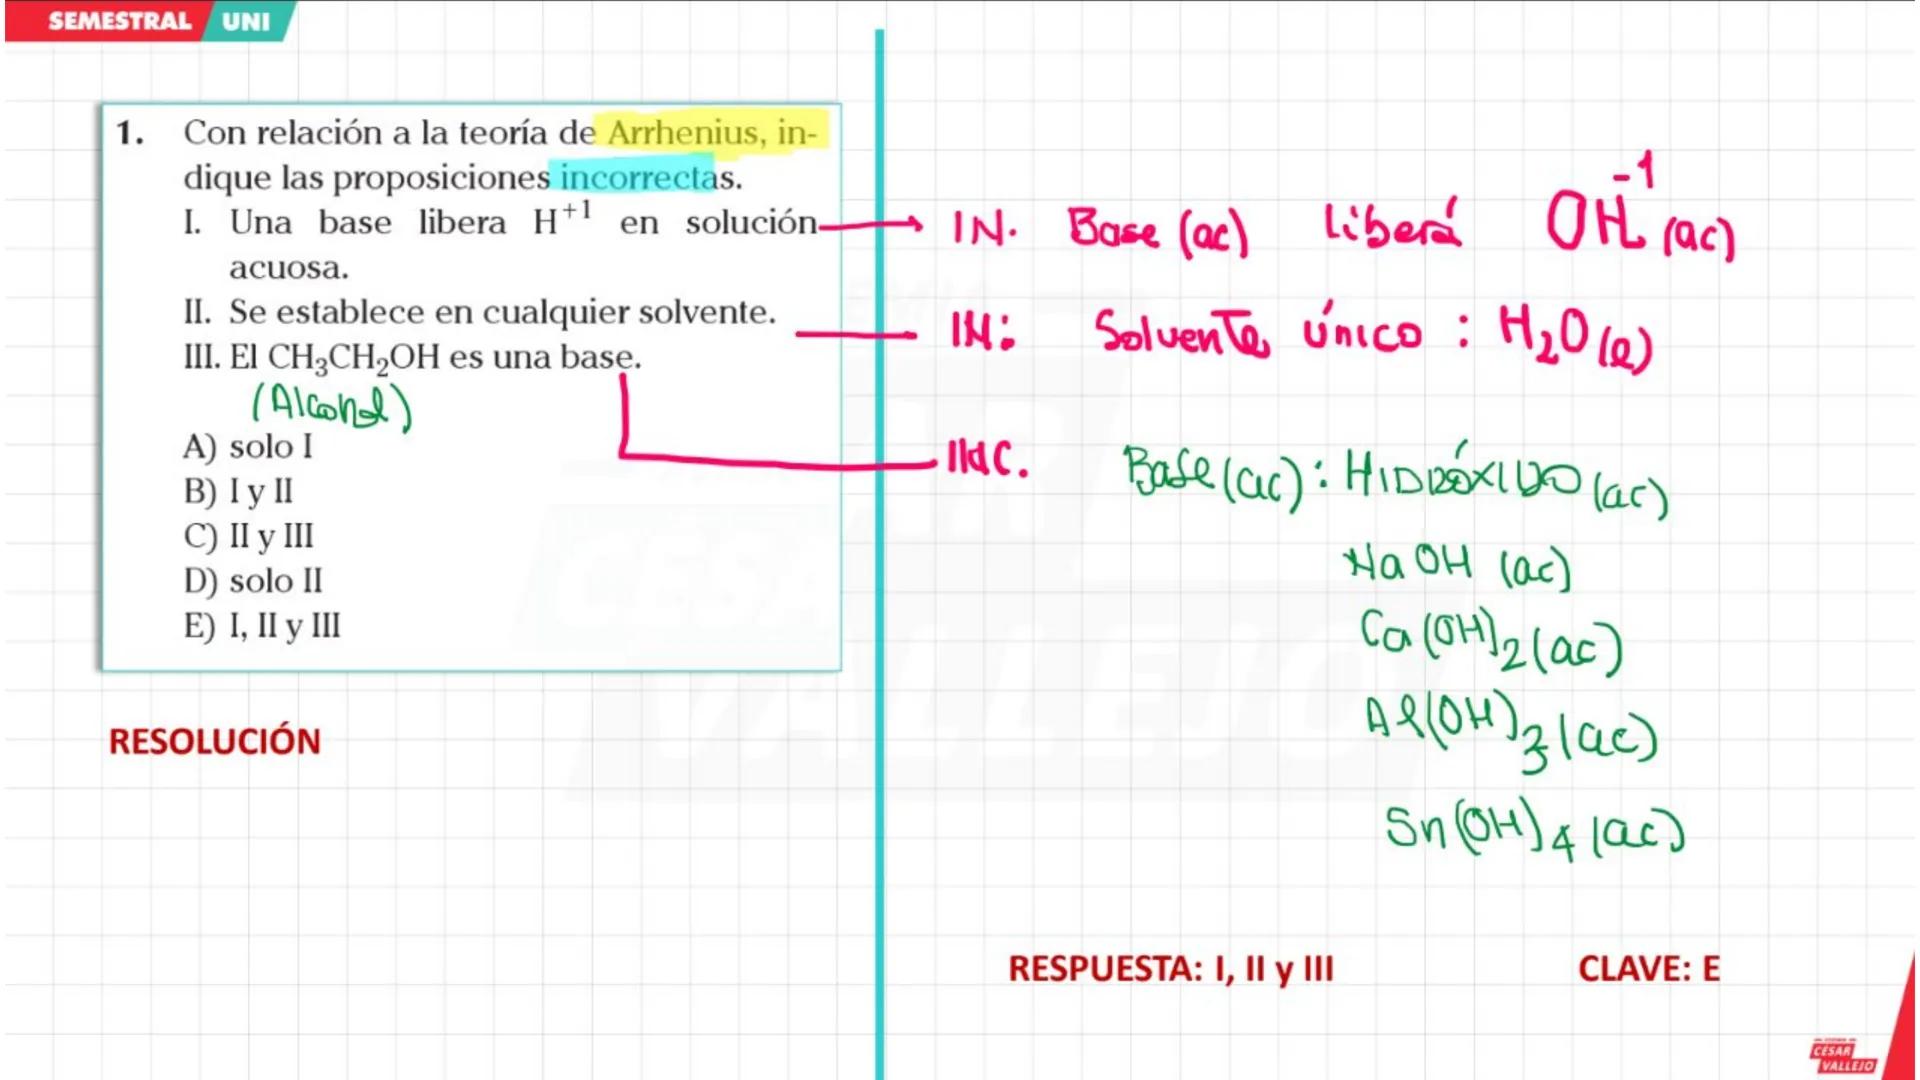 SEMESTRAL UNI
1. Con relación a la teoría de Arrhenius, in-
dique las proposiciones incorrectas.
I. Una base libera H⁺¹ en solución
acuosa.
II. Se establece en cualquier solvente.
III. El CH₃CH₂OH es una base.
(Alcohol)
A) solo I
B) I y II
C) II y III
D) solo II
E) I, II y III
RESOLUCIÓN
IN. Base (ac) liberá OH⁻¹(ac)
IN: Solvente único : H₂O(l)
INC. Base(ac): HIDRÓXIDO(ac)
NaOH (ac)
Ca(OH)₂(ac)
Al(OH)₃(ac)
Sn(OH)₄(ac)
RESPUESTA: I, II y III CLAVE: E
CÉSAR
VALLEJO